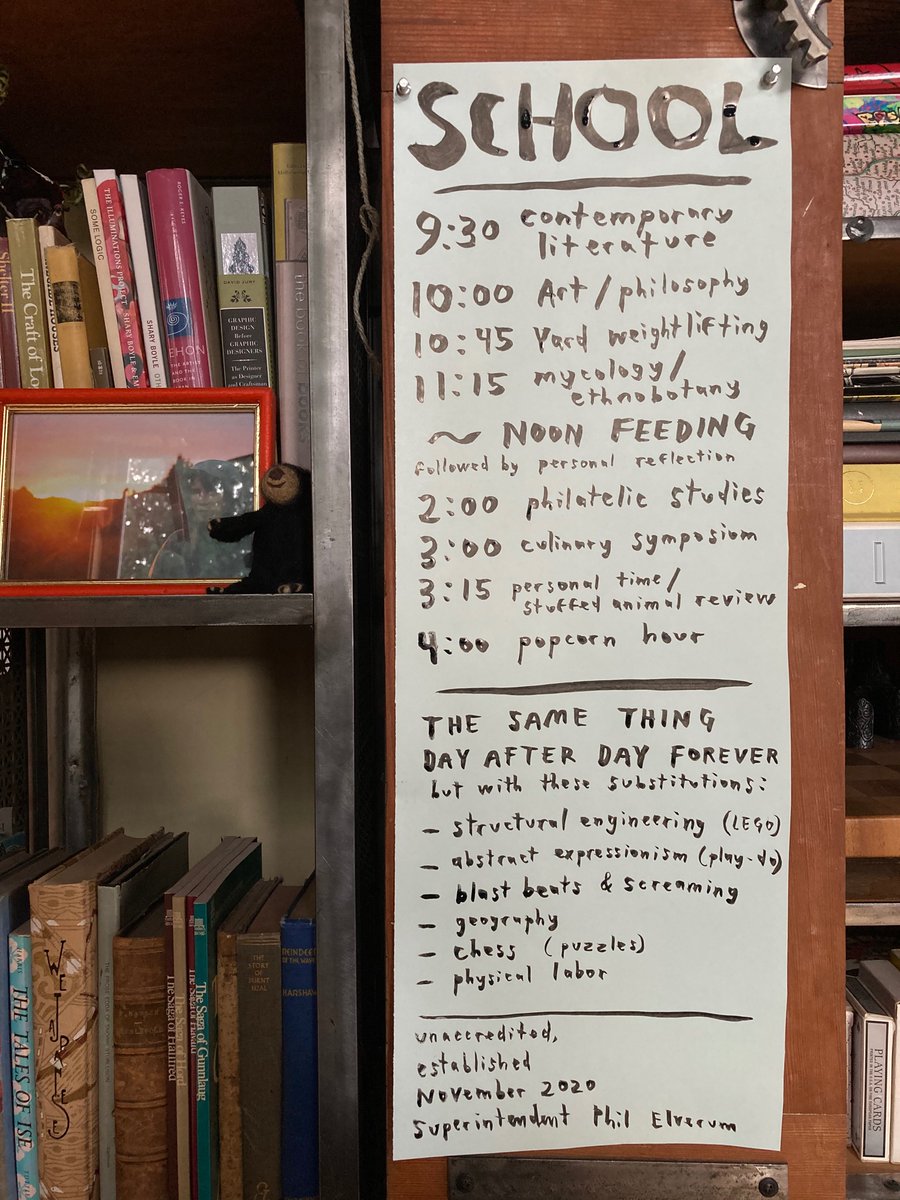 SCHOOL
9:30 contemporary
literature
10:00 Art/philosophy
10:45 Yard weightlifting
11:15 mycology/
ethnobotany
~ NOON FEEDING
followed by personal reflection
2:00 philatelic studies
3:00 culinary symposium
3:15 personal time/
stuffed animal review
4:00 popcorn hour
THE SAME THING
DAY AFTER DAY FOREVER
but with these substitutions:
- structural engineering (LEGO)
- abstract expressionism (play-do)
- blast beats & screaming
- geography
- chess (puzzles)
- physical labor
unaccredited,
established
November 2020
Superintendent Phil Elverum
Shelter II
The Craft of
SOME LOGIC
THE ILLUMINATIONS PROJECT SHARY BOYLE & EM
SHARY BOYLE
EHON
THE ARTIST
AND THE
BOOK IN
DAVID JURY
GRAPHIC
DESIGN
Before
GRAPHIC
DESIGNERS
The Printer
as Designer
and Craftsman
BOOKS
THE TALES OF ISE
WE JAPANESE
The Saga of Gunnlaug
THE
STORY OF
BURNT
NJAL
REINDEER
OF THE WAVES
HARSHAW
PLAYING CARDS